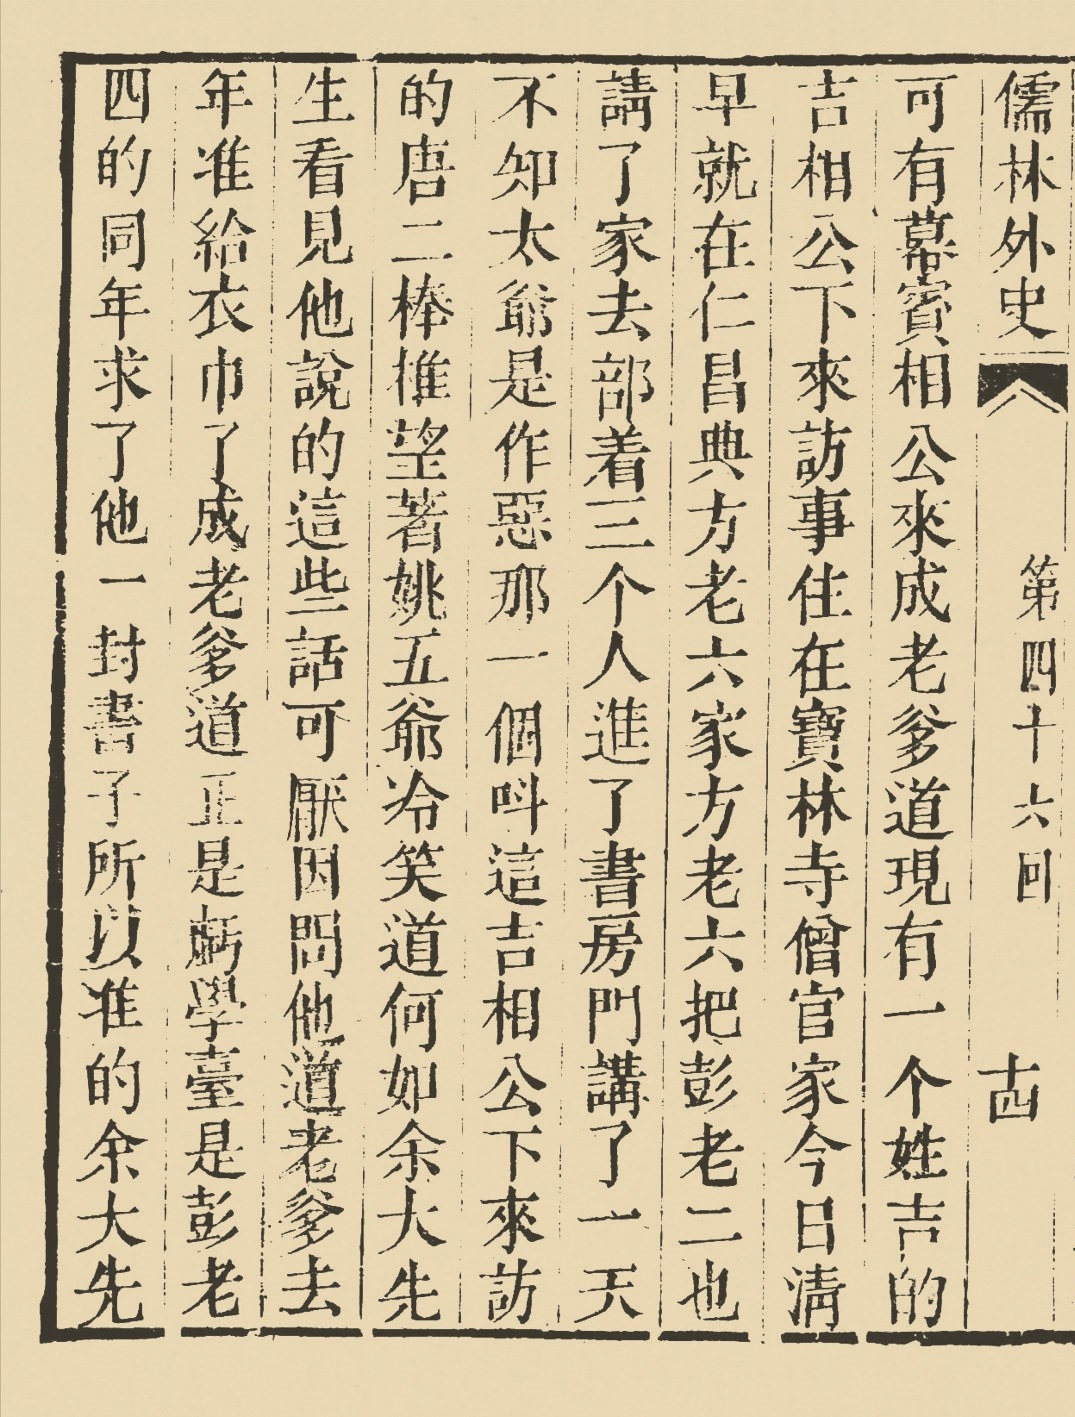 儒林外史 第四十六回 十四
可有幕賓相公來成老爹道現有一个姓吉的
吉相公下來訪事住在寶林寺僧官家今日清
早就在仁昌典方老六家方老六把彭老二也
請了家去部着三个人進了書房門講了一天
不知太爺是作惡那一個呌這吉相公下來訪
的唐二棒椎望著姚五爺冷笑道何如余大先
生看見他說的這些話可厭因問他道老爹去
年准給衣巾了成老爹道正是虧學臺是彭老
四的同年求了他一封書子所以准的余大先